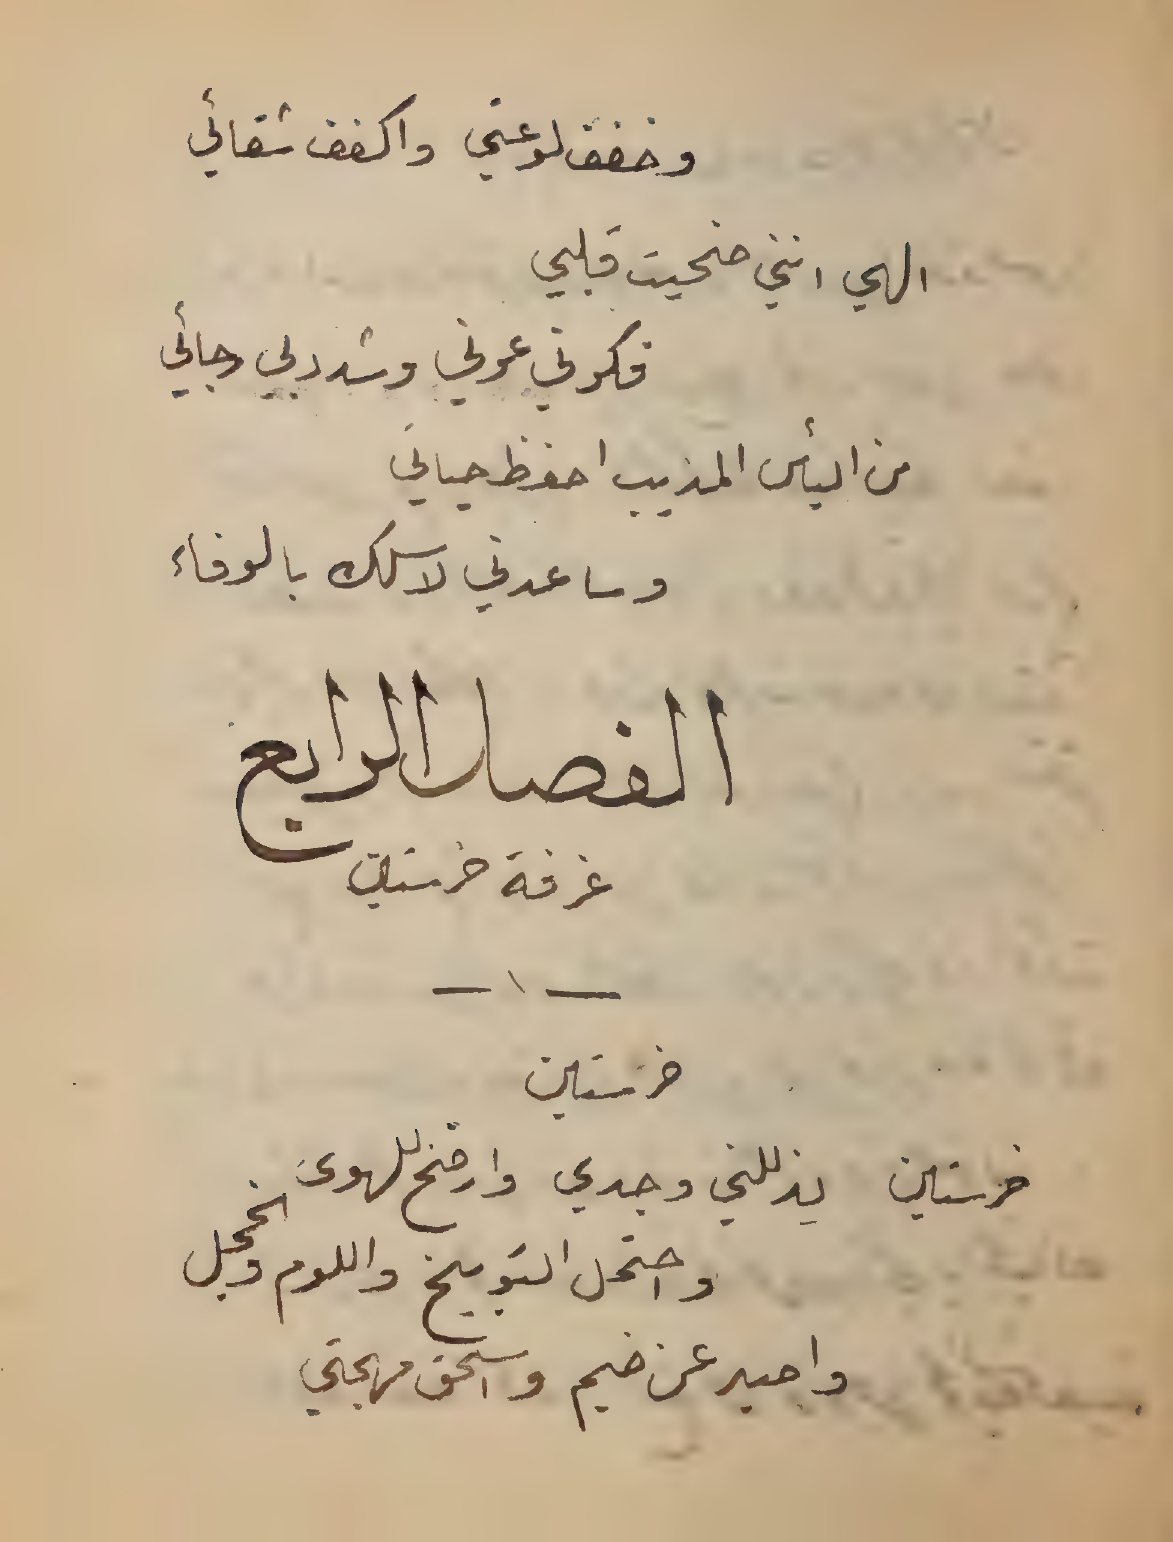 وخفف لوعتي واكفف شقائي
الهي انني ضحيت قلبي
فكوني عوني وشدد لي رجائي
من اليأس المذيب احفظ حياتي
وساعدني لاسلك بالوفاء
الفصل الرابع
غرفة خرستين
— ١ —
خرستين
خرستين يذللني وجدي وارضخ للهوى
واحتمل التوبيخ واللوم والخجل
واحيد عن ضيم واسحق مهجتي